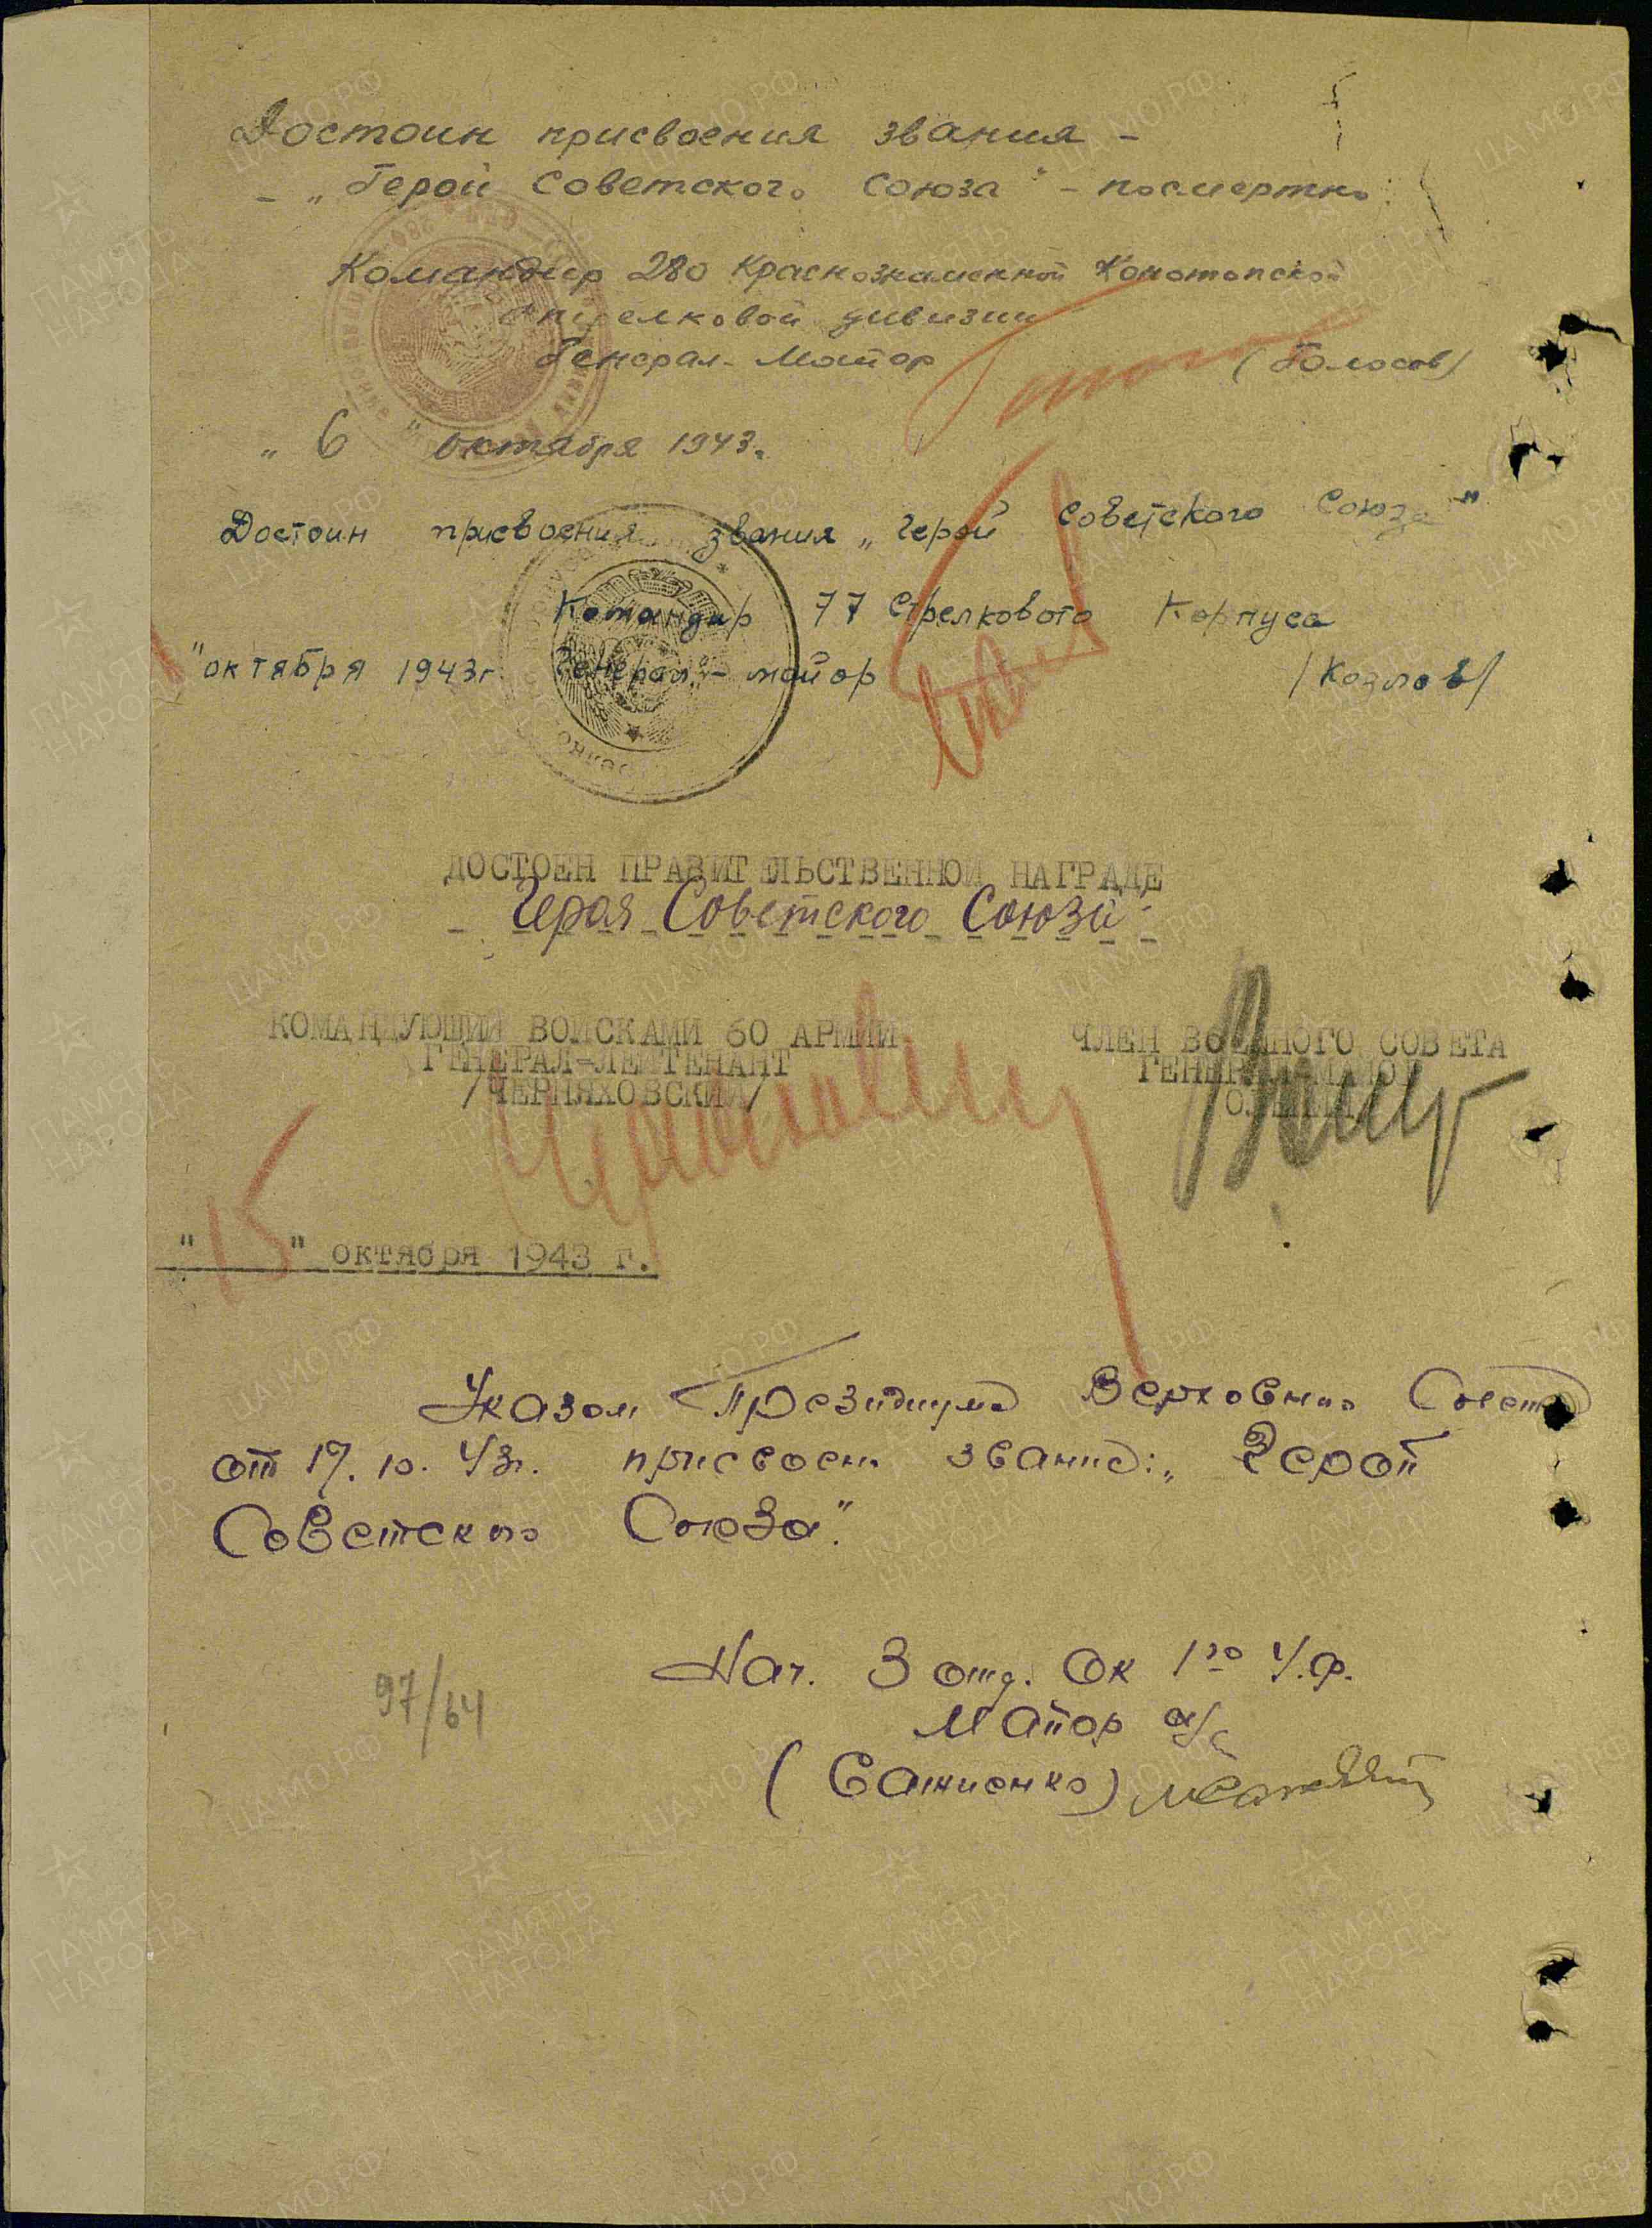 Достоин присвоения звания -
- „Герой Советского Союза" - посмертно.
Командир 280 Краснознаменной Конотопской
стрелковой дивизии
Генерал-Майор (Голосов)
„6" октября 1943.
Достоин присвоения звания „Герой Советского Союза"
Командир 77 Стрелкового Корпуса
" октября 1943г. Генерал-майор /Козлов/
ДОСТОЕН ПРАВИТЕЛЬСТВЕННОЙ НАГРАДЕ
Героя Советского Союза
КОМАНДУЮЩИЙ ВОЙСКАМИ 60 АРМИИ ЧЛЕН ВОЕННОГО СОВЕТА
ГЕНЕРАЛ-ЛЕЙТЕНАНТ ГЕНЕРАЛ-МАЙОР
/ЧЕРНЯХОВСКИЙ/ ОЛЕНИН
"15" октября 1943 г.
Указом Президиума Верховного Совета
от 17.10.43г. присвоено звание: „Герой
Советского Союза".
Нач. 3 отд. ОК 1го У.Ф.
Майор а/с
(Сажиенко)
97/64
ПАМЯТЬ НАРОДА
ЦАМО.РФ